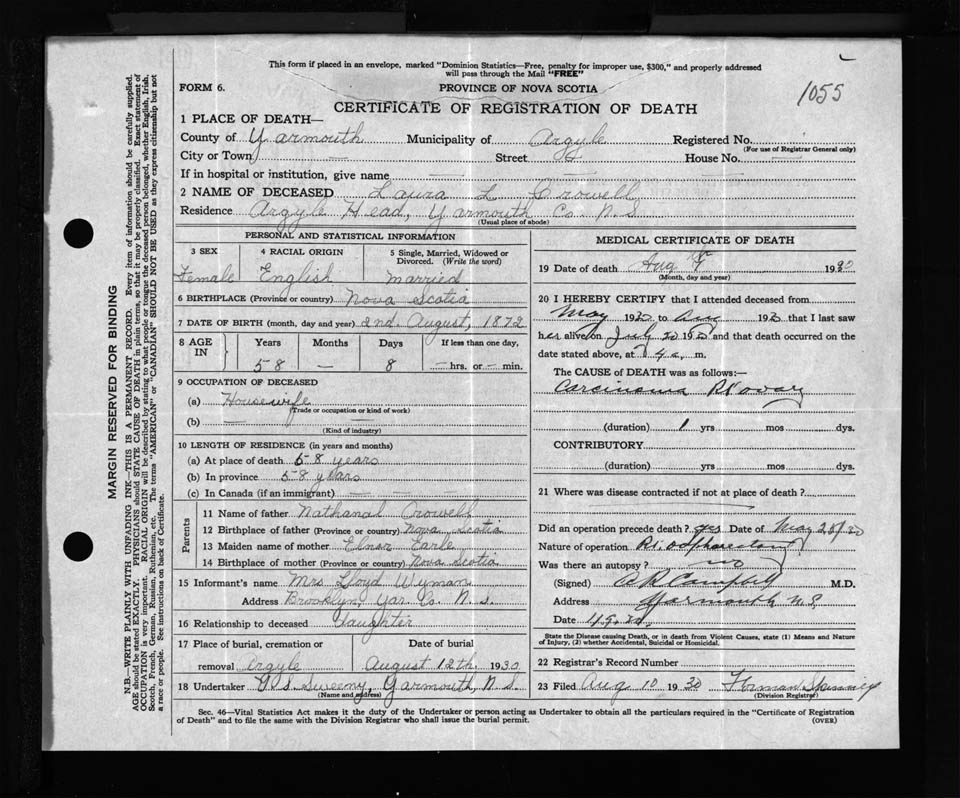 This form if placed in an envelope, marked "Dominion Statistics—Free, penalty for improper use, $300," and properly addressed
will pass through the Mail "FREE"
1055
FORM 6.
PROVINCE OF NOVA SCOTIA
CERTIFICATE OF REGISTRATION OF DEATH
1 PLACE OF DEATH—
County of Yarmouth Municipality of Argyle Registered No.
(For use of Registrar General only)
City or Town — Street — House No. —
If in hospital or institution, give name — —
2 NAME OF DECEASED Laura L. Crowell
Residence Argyle Head, Yarmouth Co. N.S.
(Usual place of abode)
PERSONAL AND STATISTICAL INFORMATION
3 SEX 4 RACIAL ORIGIN 5 Single, Married, Widowed or
Divorced. (Write the word)
Female English Married
6 BIRTHPLACE (Province or country) Nova Scotia
7 DATE OF BIRTH (month, day and year) 2nd. August, 1872
8 AGE IN Years Months Days If less than one day,
58 — 8 — hrs. or — min.
9 OCCUPATION OF DECEASED
(a) Housewife
(Trade or occupation or kind of work)
(b) — —
(Kind of industry)
10 LENGTH OF RESIDENCE (in years and months)
(a) At place of death 58 years
(b) In province 58 years
(c) In Canada (if an immigrant) — —
Parents
11 Name of father Nathanal Crowell
12 Birthplace of father (Province or country) Nova Scotia
13 Maiden name of mother Elner Earle
14 Birthplace of mother (Province or country) Nova Scotia
15 Informant's name Mrs Lloyd Wyman
Address Brooklyn, Yar. Co. N.S.
16 Relationship to deceased Daughter
17 Place of burial, cremation or Date of burial
removal Argyle August 12th. 1930
18 Undertaker Sweeny, Yarmouth, N.S.
(Name and address)
MEDICAL CERTIFICATE OF DEATH
19 Date of death Aug 1930
(Month, day and year)
20 I HEREBY CERTIFY that I attended deceased from
May 192 to Aug 192 that I last saw
her alive on July 20 19 and that death occurred on the
date stated above, at m.
The CAUSE of DEATH was as follows:—
Carcinoma Rt Ovary
(duration) 1 yrs mos dys.
CONTRIBUTORY
(duration) yrs mos dys.
21 Where was disease contracted if not at place of death?
Did an operation precede death? yes Date of May 28/30
Nature of operation Rt. Oophorectomy
Was there an autopsy? no
(Signed) A R Campbell M.D.
Address Yarmouth N.S.
Date
State the Disease causing Death, or in death from Violent Causes, state (1) Means and Nature
of Injury, (2) whether Accidental, Suicidal or Homicidal.
22 Registrar's Record Number
23 Filed Aug 10 1930
(Division Registrar)
Sec. 46—Vital Statistics Act makes it the duty of the Undertaker or person acting as Undertaker to obtain all the particulars required in the "Certificate of Registration
of Death" and to file the same with the Division Registrar who shall issue the burial permit.
(OVER)
MARGIN RESERVED FOR BINDING
N.B.—WRITE PLAINLY WITH UNFADING INK—THIS IS A PERMANENT RECORD. Every item of information should be carefully supplied.
AGE should be stated EXACTLY. PHYSICIANS should STATE CAUSE OF DEATH in plain terms, so that it may be properly classified. Exact statement of
OCCUPATION is very important. RACIAL ORIGIN will be described by stating to what people or tongue the deceased person belonged, whether English, Irish,
Scotch, French, German, Russian, Ruthenian, etc. The terms "AMERICAN" or "CANADIAN" SHOULD NOT BE USED as they express citizenship but not
a race or people. See instructions on back of Certificate.